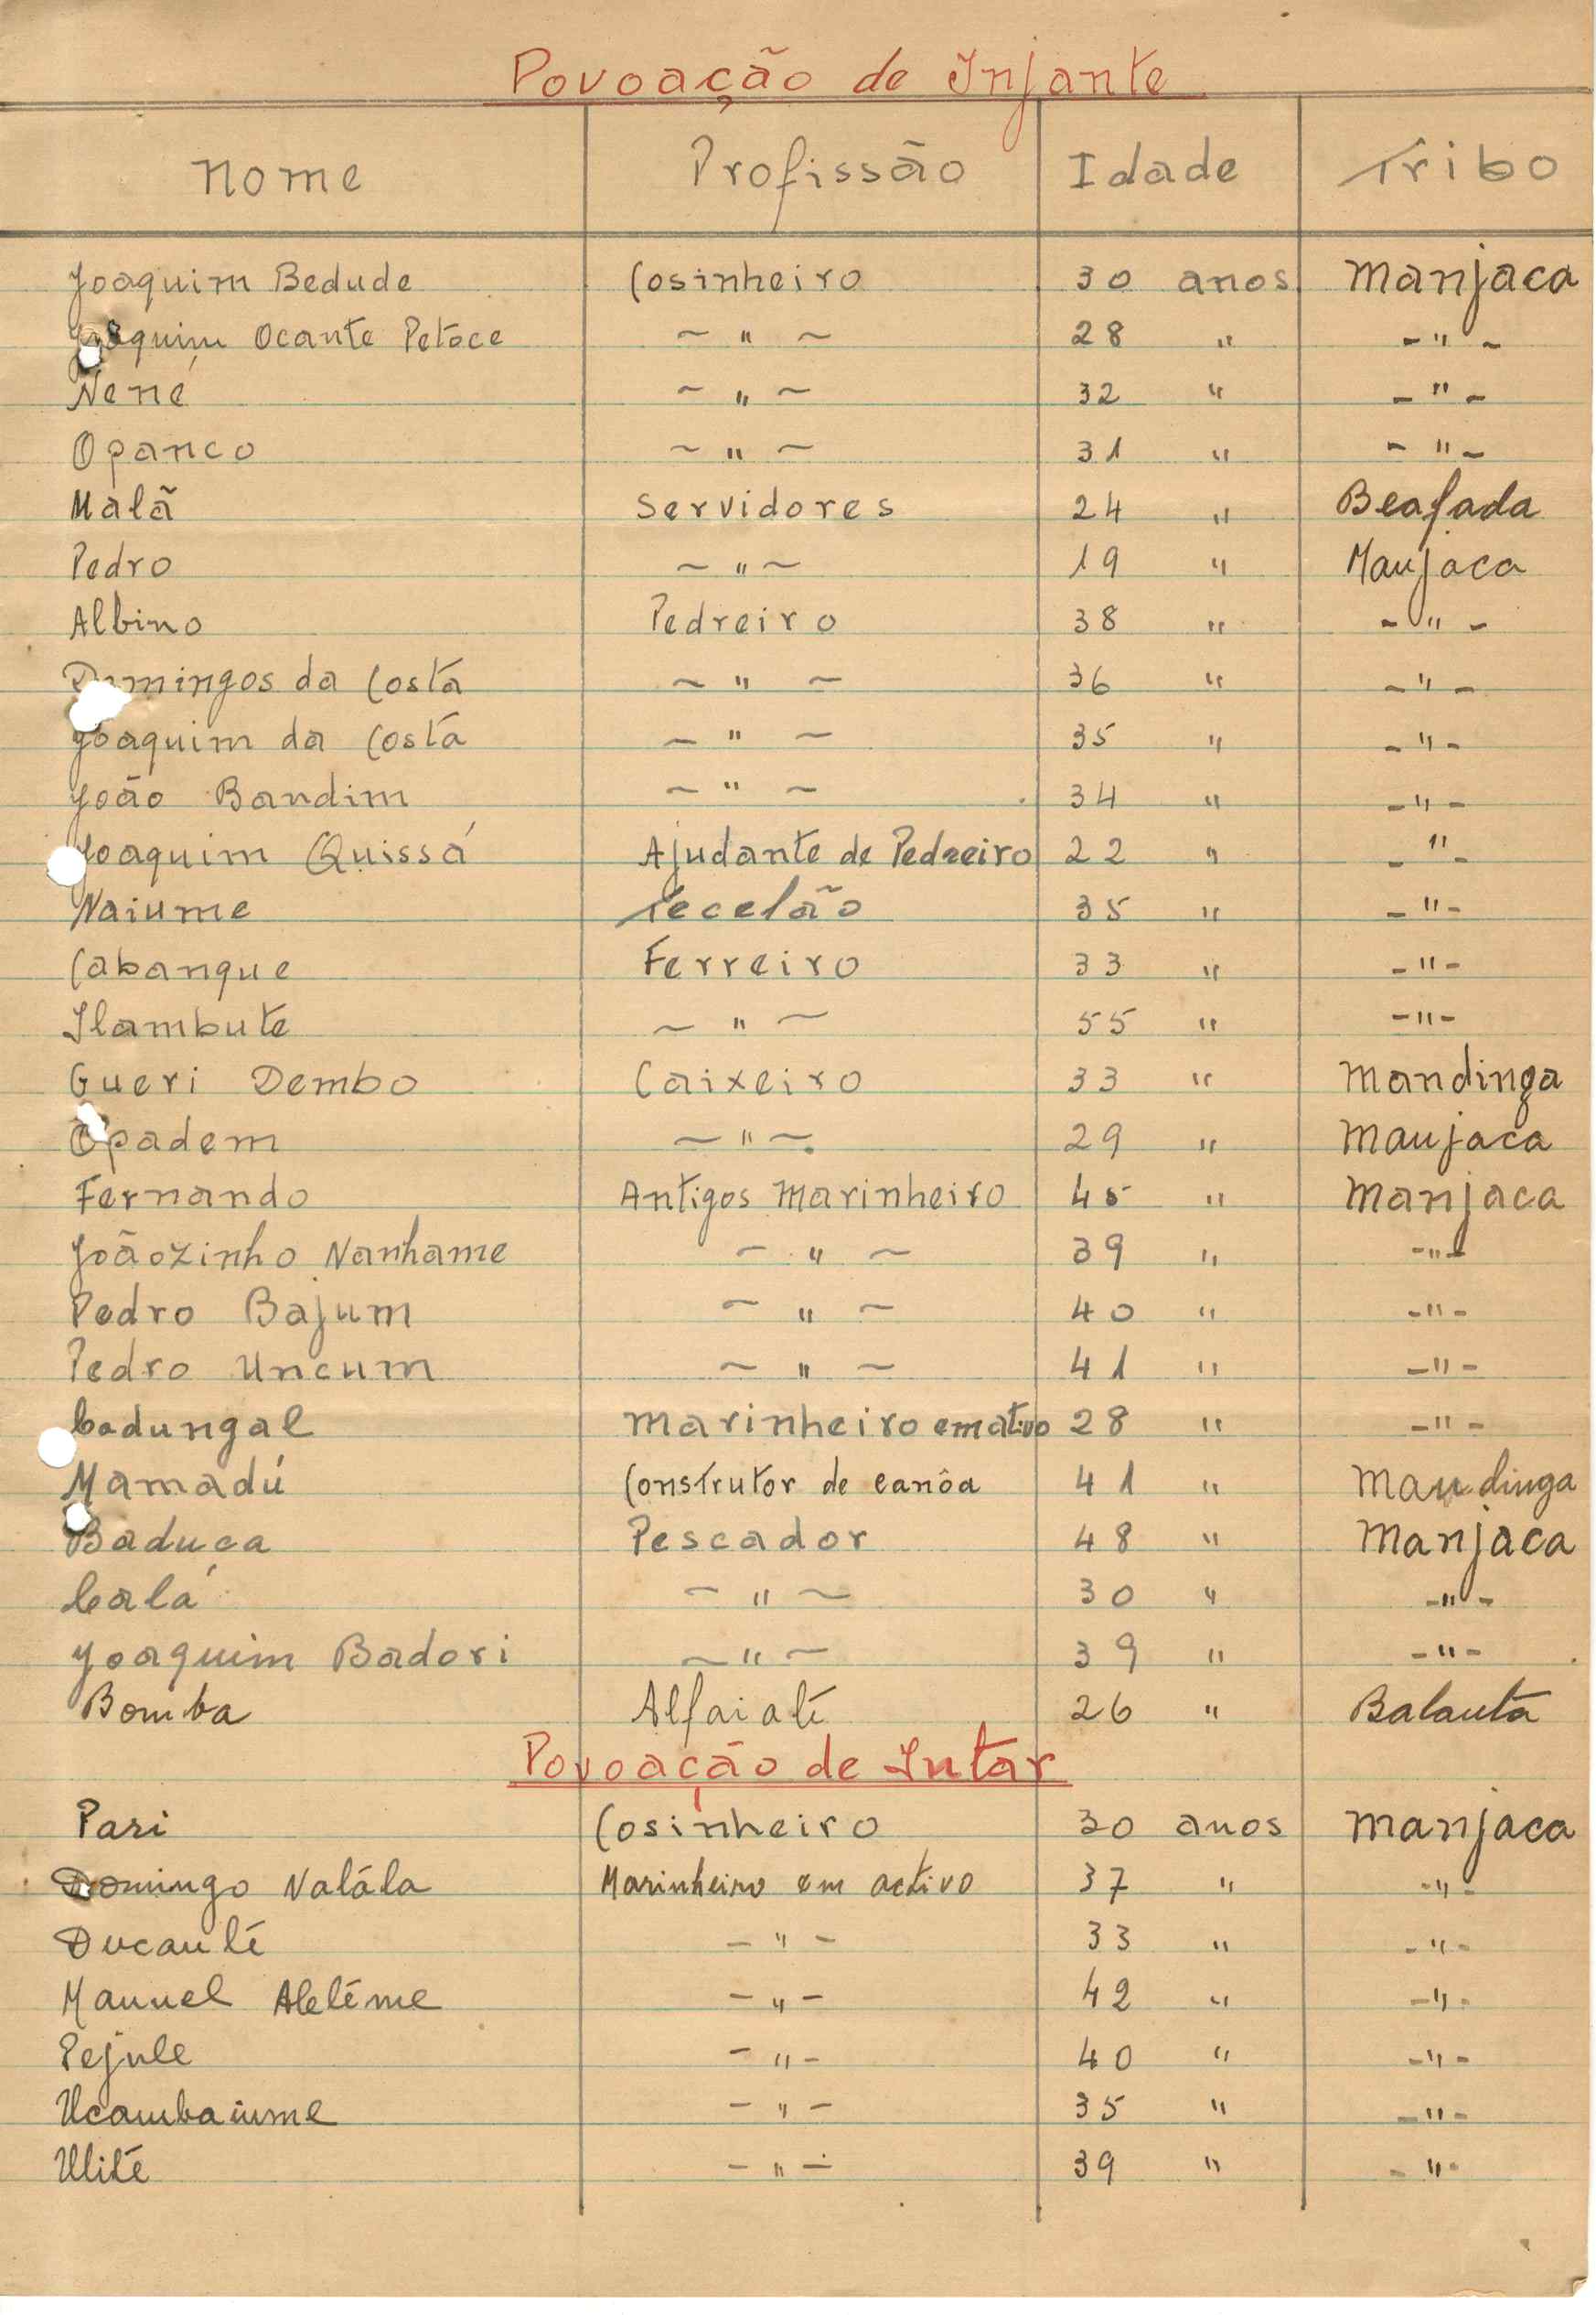 Povoação de Injante
Nome Profissão Idade Tribo
Joaquim Bedude Cosinheiro 30 anos Manjaca
Joaquim Ocante Petoce ~ " ~ 28 " - " -
Nené ~ " ~ 32 " - " -
Opanco ~ " ~ 31 " - " -
Malã Servidores 24 " Beafada
Pedro ~ " ~ 19 " Manjaca
Albino Pedreiro 38 " - " -
Domingos da Costa ~ " ~ 36 " - " -
Joaquim da Costa ~ " ~ 35 " - " -
João Bandim ~ " ~ 34 " - " -
Joaquim Quissá Ajudante de Pedreiro 22 " - " -
Naiume Tecelão 35 " - " -
Cabanque Ferreiro 33 " - " -
Ilambute ~ " ~ 55 " - " -
Gueri Dembo Caixeiro 33 " Mandinga
Opadem ~ " ~ 29 " Manjaca
Fernando Antigos Marinheiro 45 " Manjaca
Joãozinho Nanhame ~ " ~ 39 " - " -
Pedro Bajum ~ " ~ 40 " - " -
Pedro Uncum ~ " ~ 41 " - " -
Cadungal Marinheiro em ativo 28 " - " -
Mamadú Construtor de canôa 41 " Mandinga
Baduca Pescador 48 " Manjaca
Calá ~ " ~ 30 " - " -
Joaquim Badori ~ " ~ 39 " - " -
Bomba Alfaiate 26 " Balanta
Povoação de Intar
Pari Cosinheiro 30 anos Manjaca
Domingo Natála Marinheiro em activo 37 " - " -
Ducanté - " - 33 " - " -
Manuel Aletéme - " - 42 " - " -
Pejule - " - 40 " - " -
Ucambaiume - " - 35 " - " -
Ulité - " - 39 " - " -